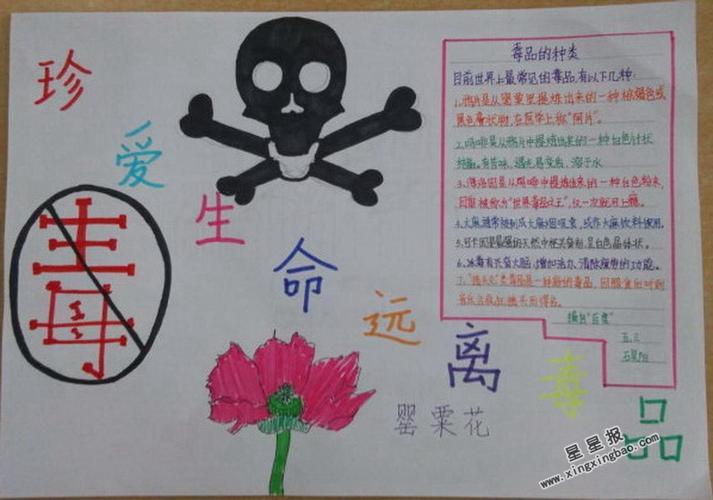 珍爱生命远离毒品
毒
毒品的种类
目前世界上最常见的毒品,有以下几种:
1.鸦片是从罂粟里提炼出来的一种棕褐色或
黑色膏状物,在医学上称“阿片”。
2.吗啡是从鸦片中提炼出来的一种白色针状
结晶。有苦味,遇光易变质,溶于水
3.海洛因是从吗啡中提炼出来的一种白色粉末,
因而被称为“世界毒品之王”,仅一次就可上瘾。
4.大麻通常被制成大麻烟吸食,或作大麻饮料使用。
5.可卡因是最强的天然中枢兴奋剂,呈白色晶体状。
6.冰毒有兴奋大脑,增加活力,消除疲劳的功能。
7.“摇头丸”类毒品是一种新的毒品,因服食后听到
音乐会
摘自“百度”
五.2
罂粟花
星星报
www.xingxingbao.com